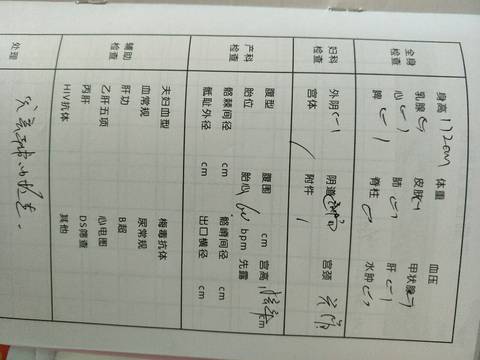 全身检查
身高 172cm 体重 血压
乳腺(-) 皮肤(-) 甲状腺(-)
心(-) 肺(-) 肝(-)
脾(-) 脊柱 水肿(-)
妇科检查
外阴(-) 阴道 宫颈
宫体 附件
产科检查
腹型 腹围 cm 宫高 cm
胎位 胎心 bpm 先露
髂棘间径 cm 髂嵴间径 cm
骶耻外径 cm 出口横径 cm
辅助检查
夫妇血型 梅毒抗体
血常规 尿常规
肝功 B超
乙肝五项 心电图
丙肝 DS筛查
HIV抗体 其他
处理